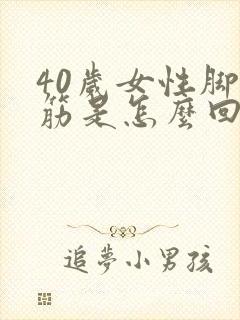 40歲女性脚
筋是怎麼回
追夢小男孩